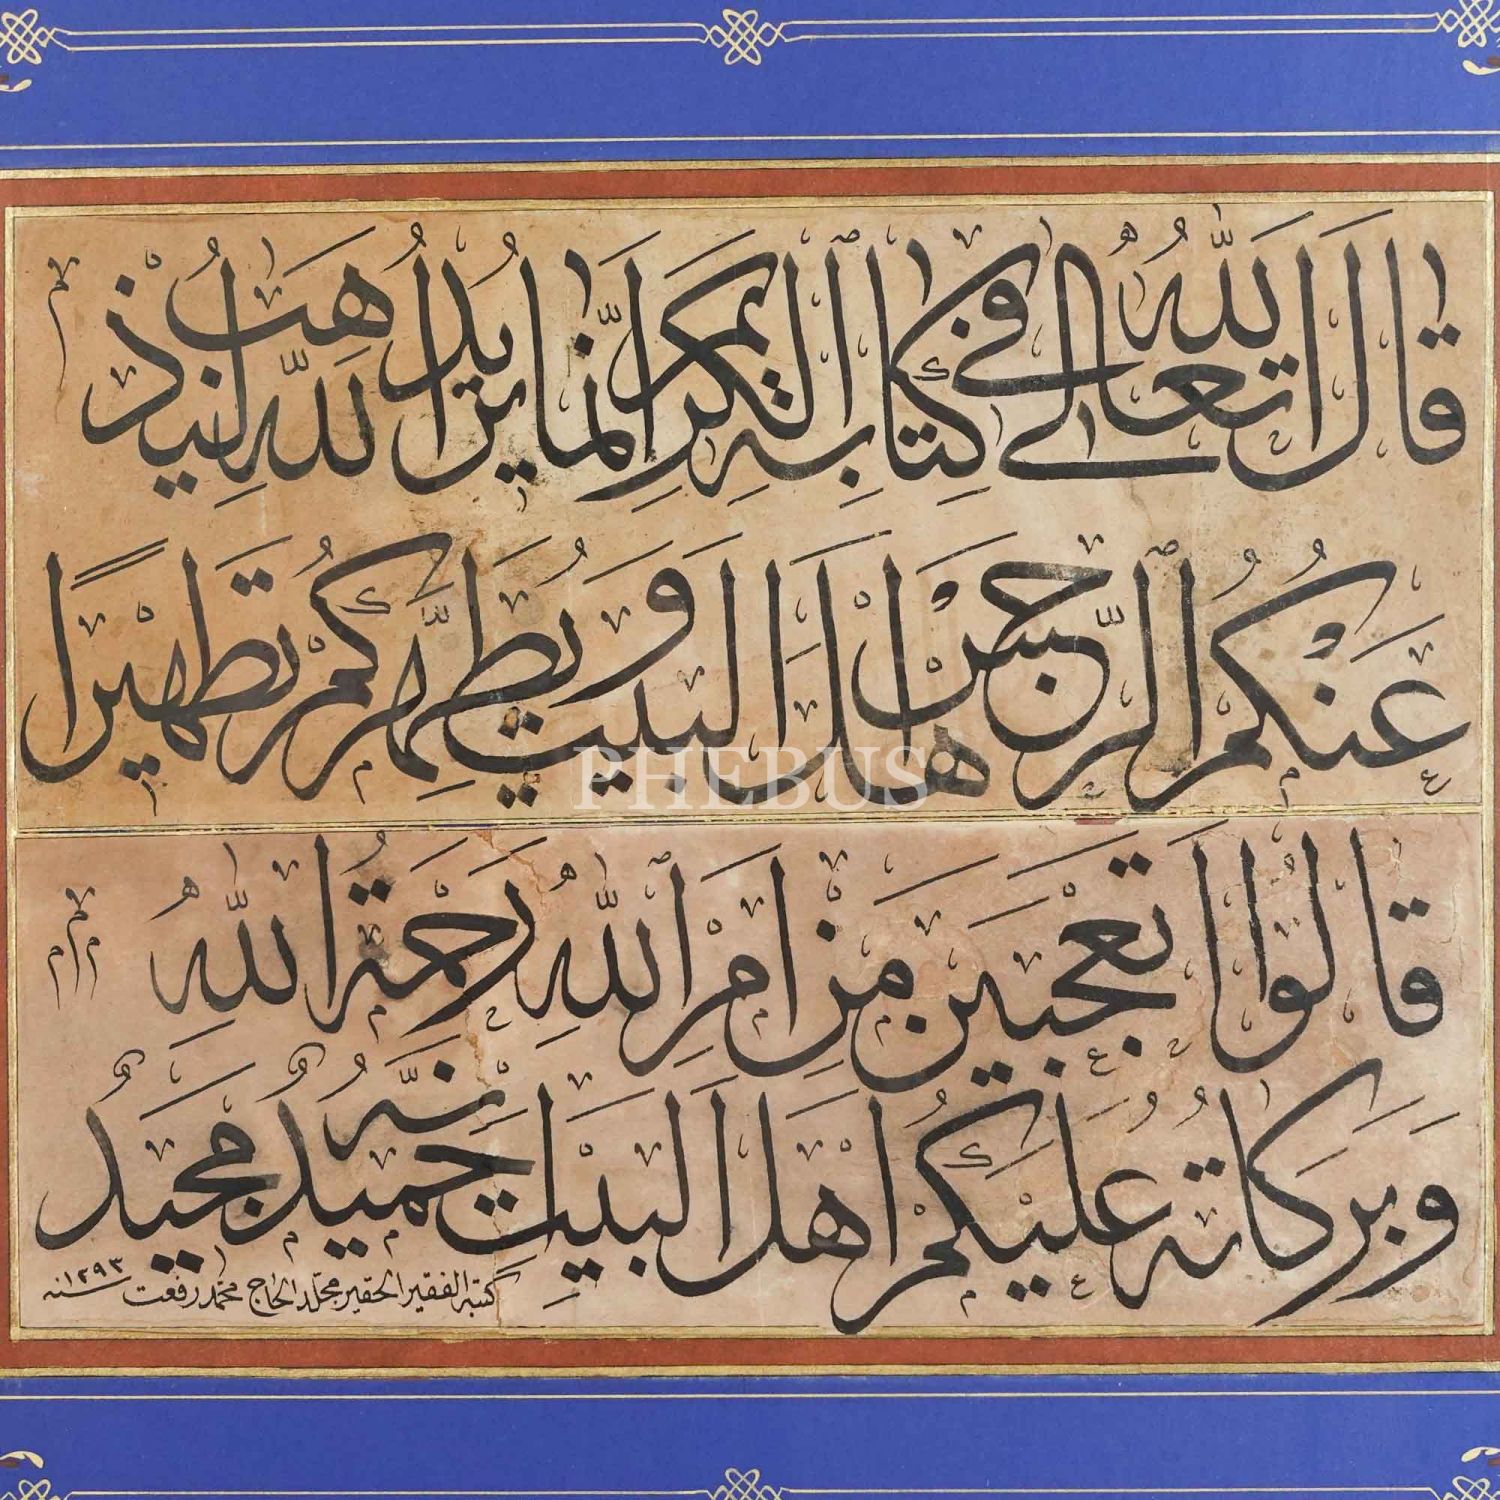 قَالَ اللّٰهُ تَعَالٰى فِى كِتَابِهِ الْكَرِيمِ اِنَّمَا يُرِيدُ اللّٰهُ لِيُذْهِبَ
عَنْكُمُ الرِّجْسَ اَهْلَ الْبَيْتِ وَيُطَهِّرَكُمْ تَطْهِيرًا
PHEBUS
قَالُوا اَتَعْجَبِينَ مِنْ اَمْرِ اللّٰهِ رَحْمَةُ اللّٰهِ
وَبَرَكَاتُهُ عَلَيْكُمْ اَهْلَ الْبَيْتِ اِنَّهُ حَمِيدٌ مَجِيدٌ
كتبه الفقير الحقير مجلد الحاج محمد رفعت سنه ١٢٩٣